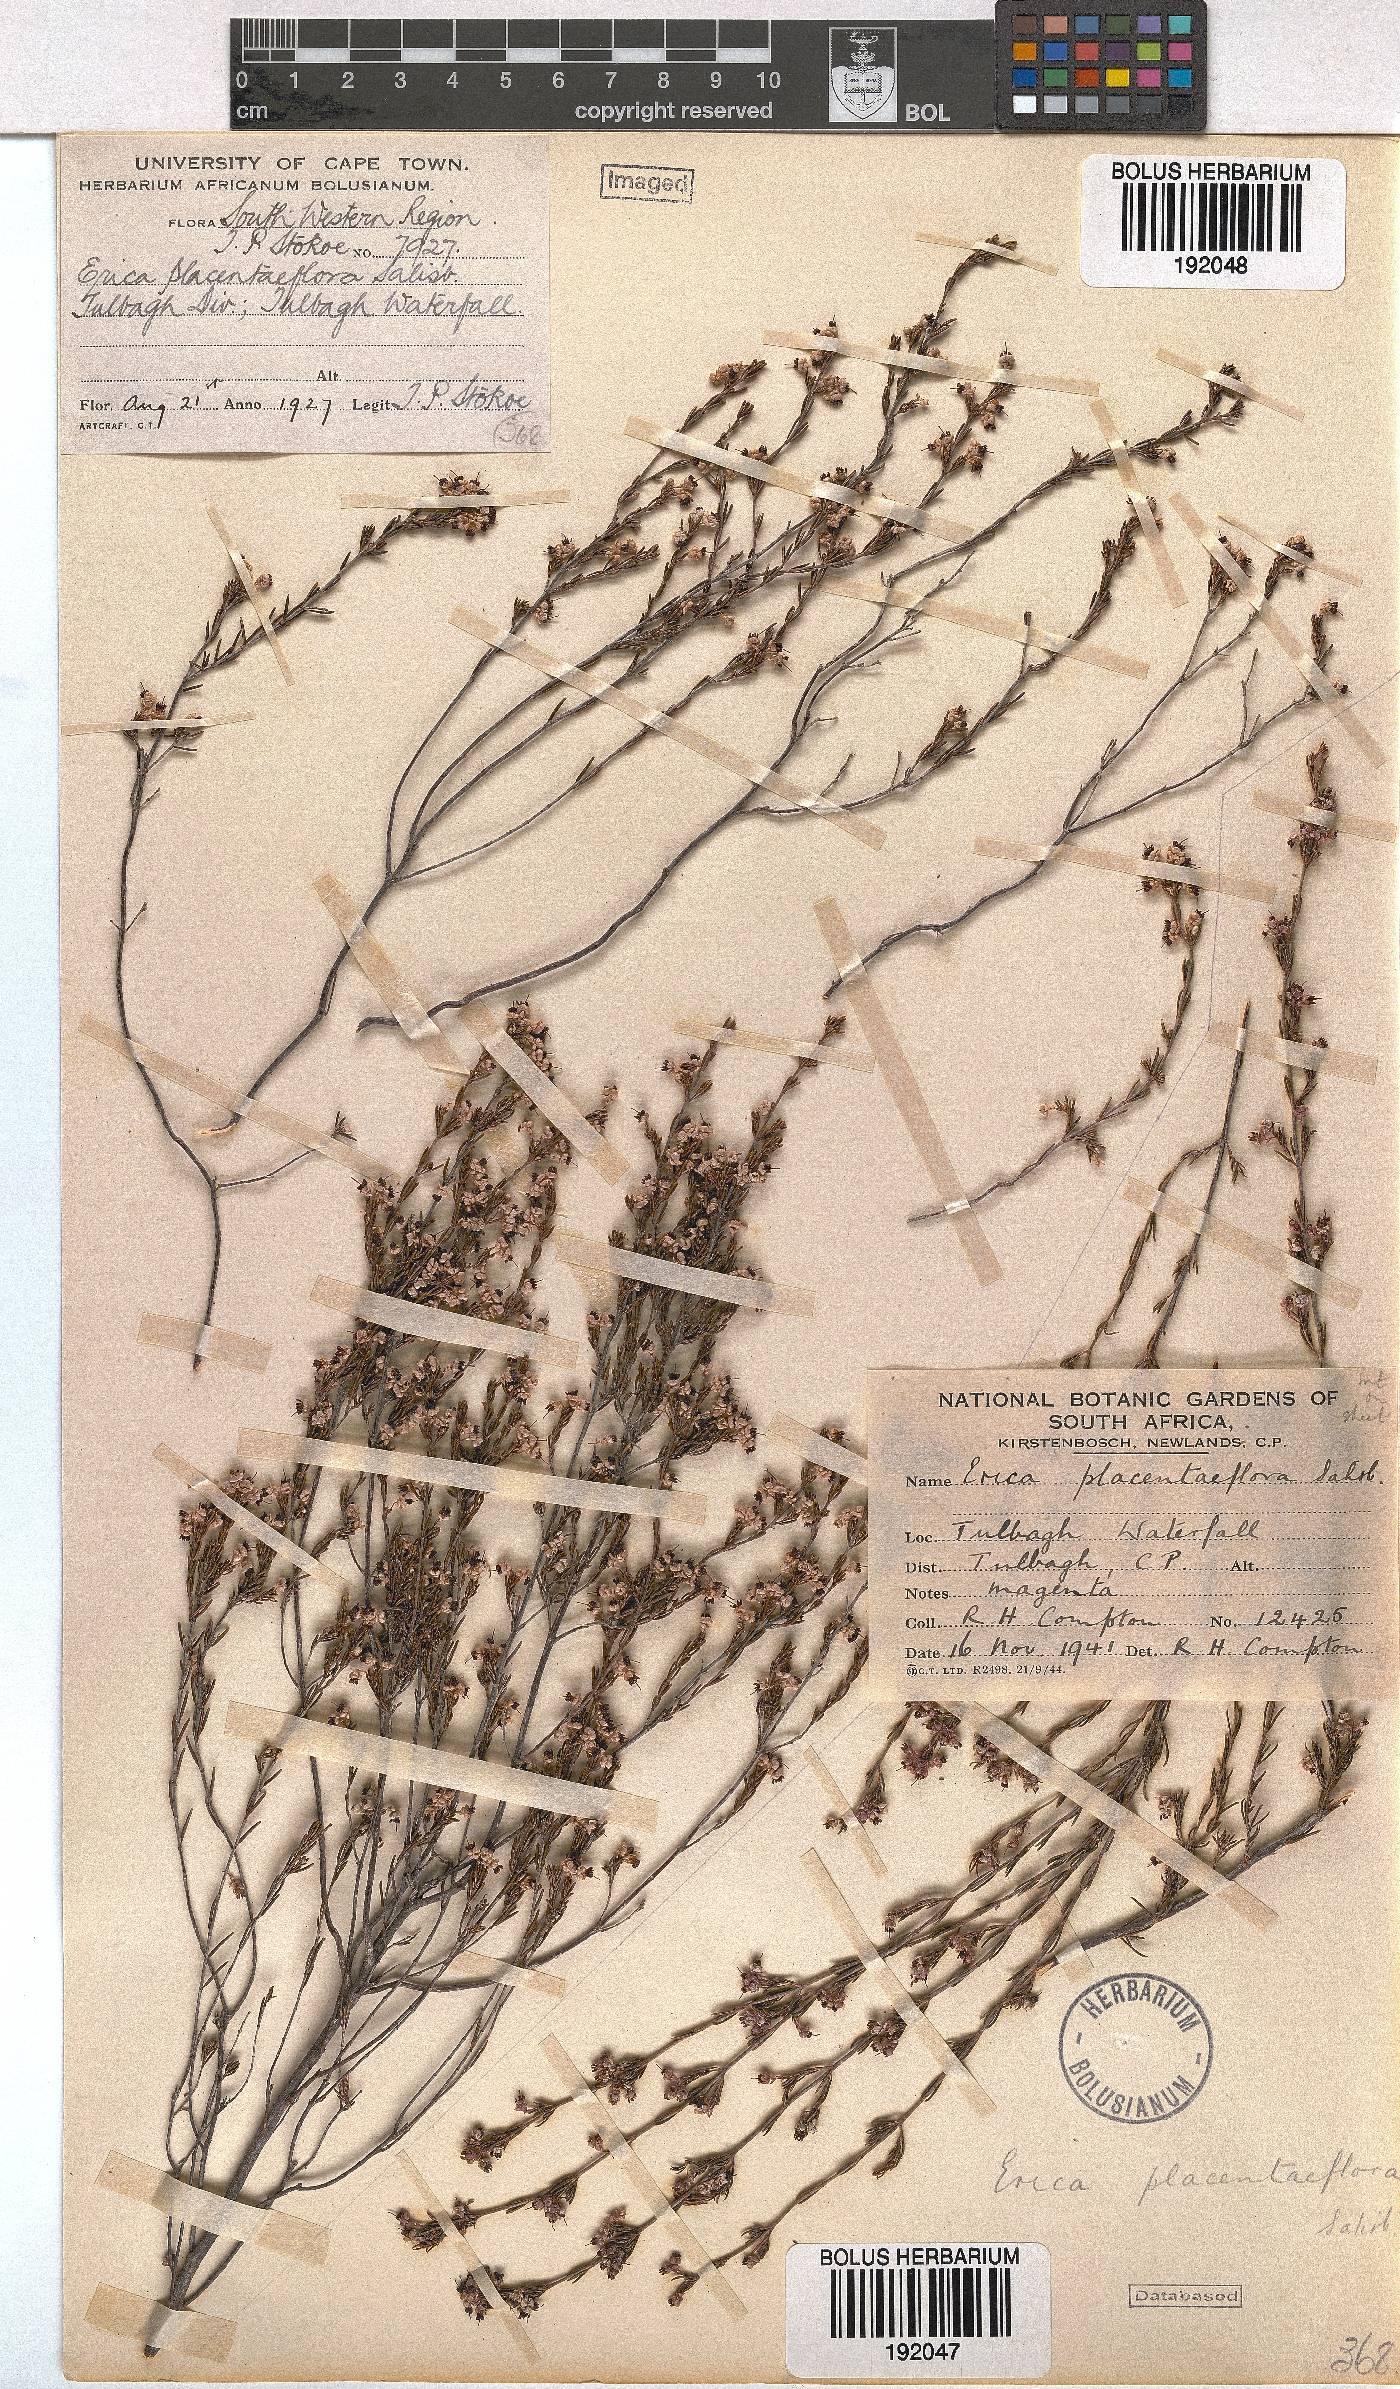 0 1 2 3 4 5 6 7 8 9 10
cm copyright reserved BOL
UNIVERSITY OF CAPE TOWN.
HERBARIUM AFRICANUM BOLUSIANUM.
FLORA South Western Region.
T. P. Stokoe No. 7927.
Erica placentaeflora Salisb.
Tulbagh Div.; Tulbagh Waterfall.
Alt.
Flor. Aug 21st Anno 1927 Legit T. P. Stokoe
ARTCRAFT. C.T.
(368
Imaged
BOLUS HERBARIUM
192048
NATIONAL BOTANIC GARDENS OF
SOUTH AFRICA,
KIRSTENBOSCH, NEWLANDS, C.P.
Name Erica placentaeflora Salisb.
Loc. Tulbagh Waterfall
Dist. Tulbagh, C P. Alt.
Notes magenta
Coll. R H Compton No. 12425
Date 16 Nov. 1941 Det. R H Compton
C.T. LTD. R2498. 21/9/44.
sheet
HERBARIUM
BOLUSIANUM
Erica placentaeflora
Salisb
BOLUS HERBARIUM
192047
Databased
368